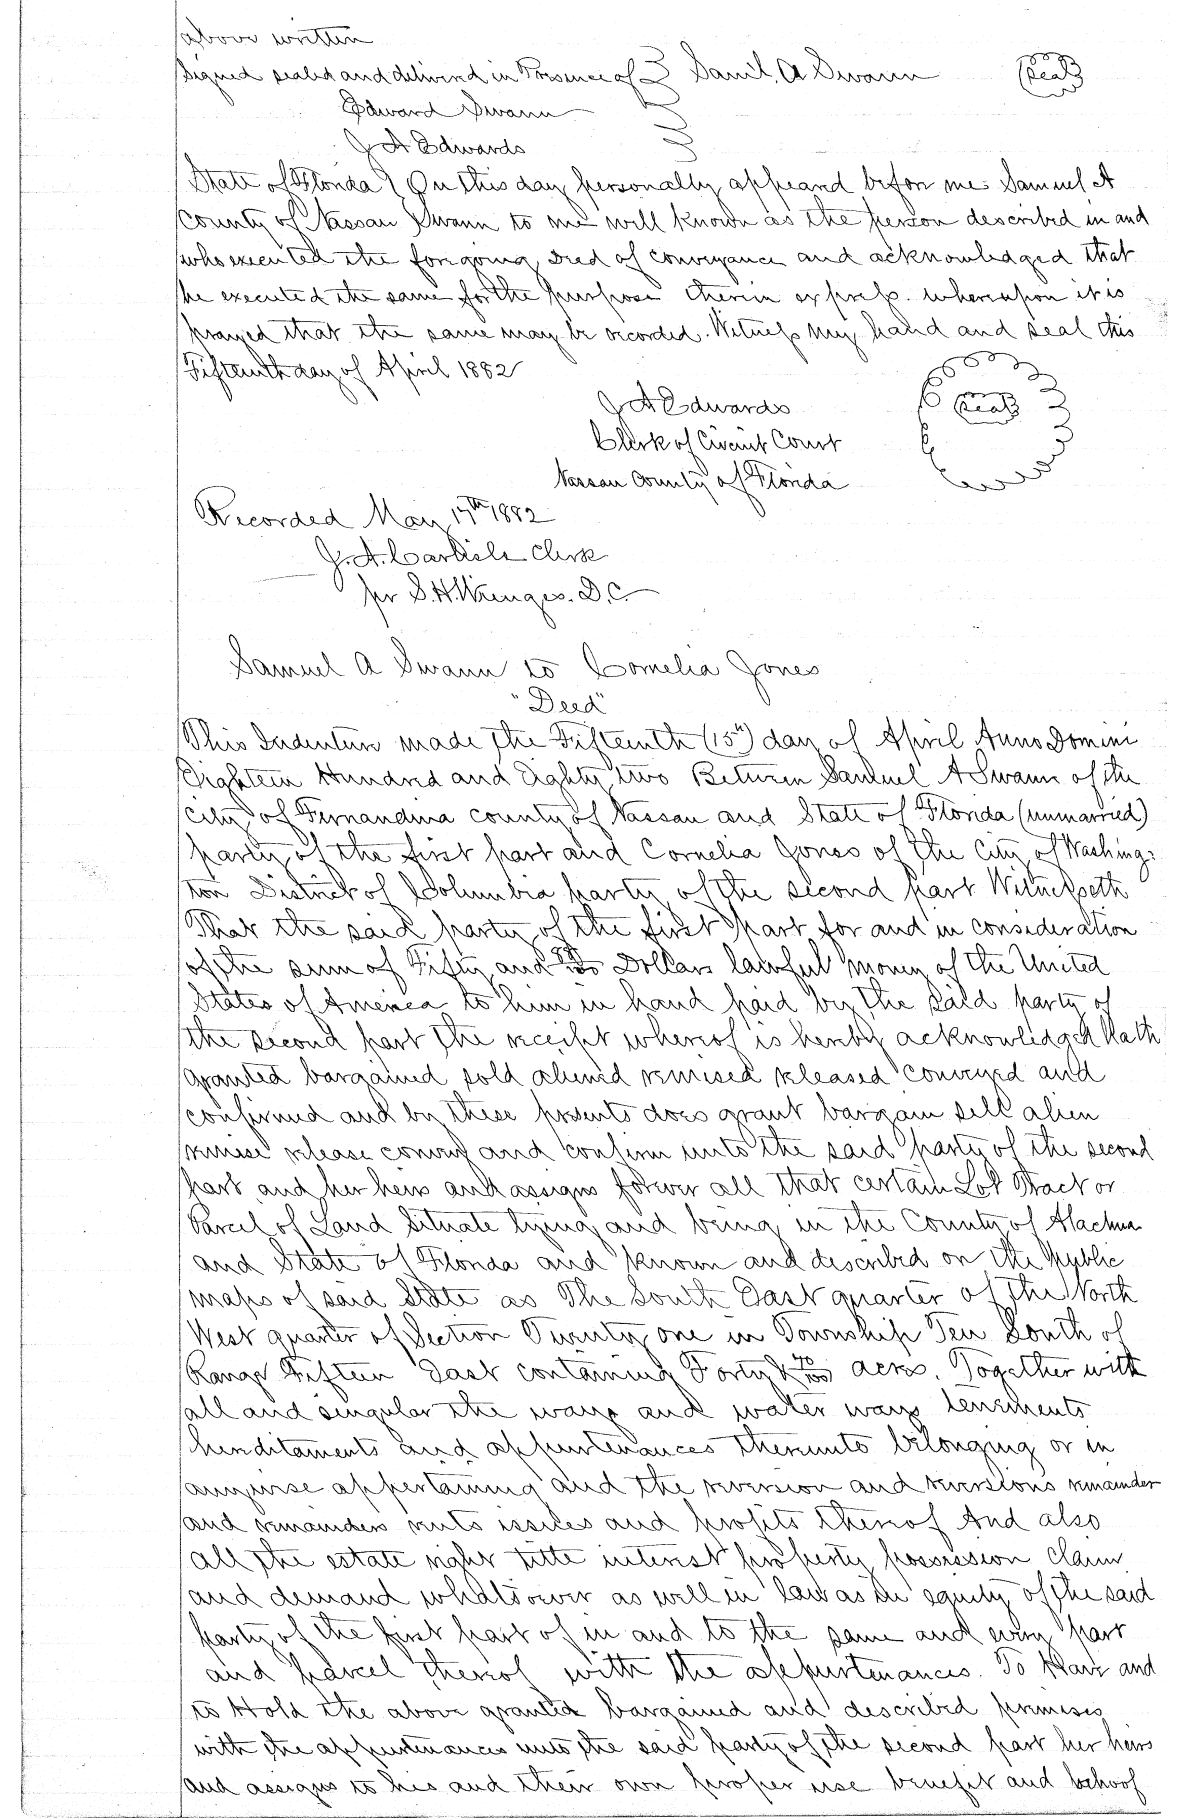 above written
Signed sealed and delivered in Presence of } Saml. A Swann (Seal)
Edward Swann
J A Edwards
State of Florida } On this day personally appeared before me Samuel A
County of Nassau Swann to me well known as the person described in and
who executed the foregoing Deed of conveyance and acknowledged that
he executed the same for the purpose therein express. whereupon it is
prayed that the same may be recorded. Witness my hand and seal this
Fifteenth day of April 1882
J A Edwards (Seal)
Clerk of Circuit Court
Nassau County of Florida
Recorded May 17th 1882
J. A. Carlisle Clerk
per S. H. Wienges. D. C.
Samuel A Swann to Cornelia Jones
"Deed"
This Indenture made the Fifteenth (15th) day of April Anno Domini
Eighteen Hundred and Eighty two Between Samuel A Swann of the
city of Fernandina county of Nassau and State of Florida (unmarried)
party of the first part and Cornelia Jones of the City of Washing-
ton District of Columbia party of the second part Witnesseth
That the said party of the first part for and in consideration
of the sum of Fifty and Dollars lawful money of the United
States of America to him in hand paid by the said party of
the second part the receipt whereof is hereby acknowledged hath
granted bargained sold aliened remised released conveyed and
confirmed and by these presents does grant bargain sell alien
remise release convey and confirm unto the said party of the second
part and her heirs and assigns forever all that certain Lot Tract or
Parcel of Land Situate lying and being in the County of Alachua
and State of Florida and known and described on the Public
maps of said State as The South East quarter of the North
West quarter of Section Twenty one in Township Ten South of
Range Fifteen East containing Forty & 10/100 acres. Together with
all and singular the ways and water ways tenements
hereditaments and appurtenances thereunto belonging or in
anywise appertaining and the reversion and reversions remainder
and remainders rents issues and profits thereof And also
all the estate right title interest property possession claim
and demand whatsoever as well in law as in equity of the said
party of the first part of in and to the same and every part
and parcel thereof with the appurtenances. To Have and
to Hold the above granted bargained and described premises
with the appurtenances unto the said party of the second part her heirs
and assigns to his and their own proper use benefit and behoof